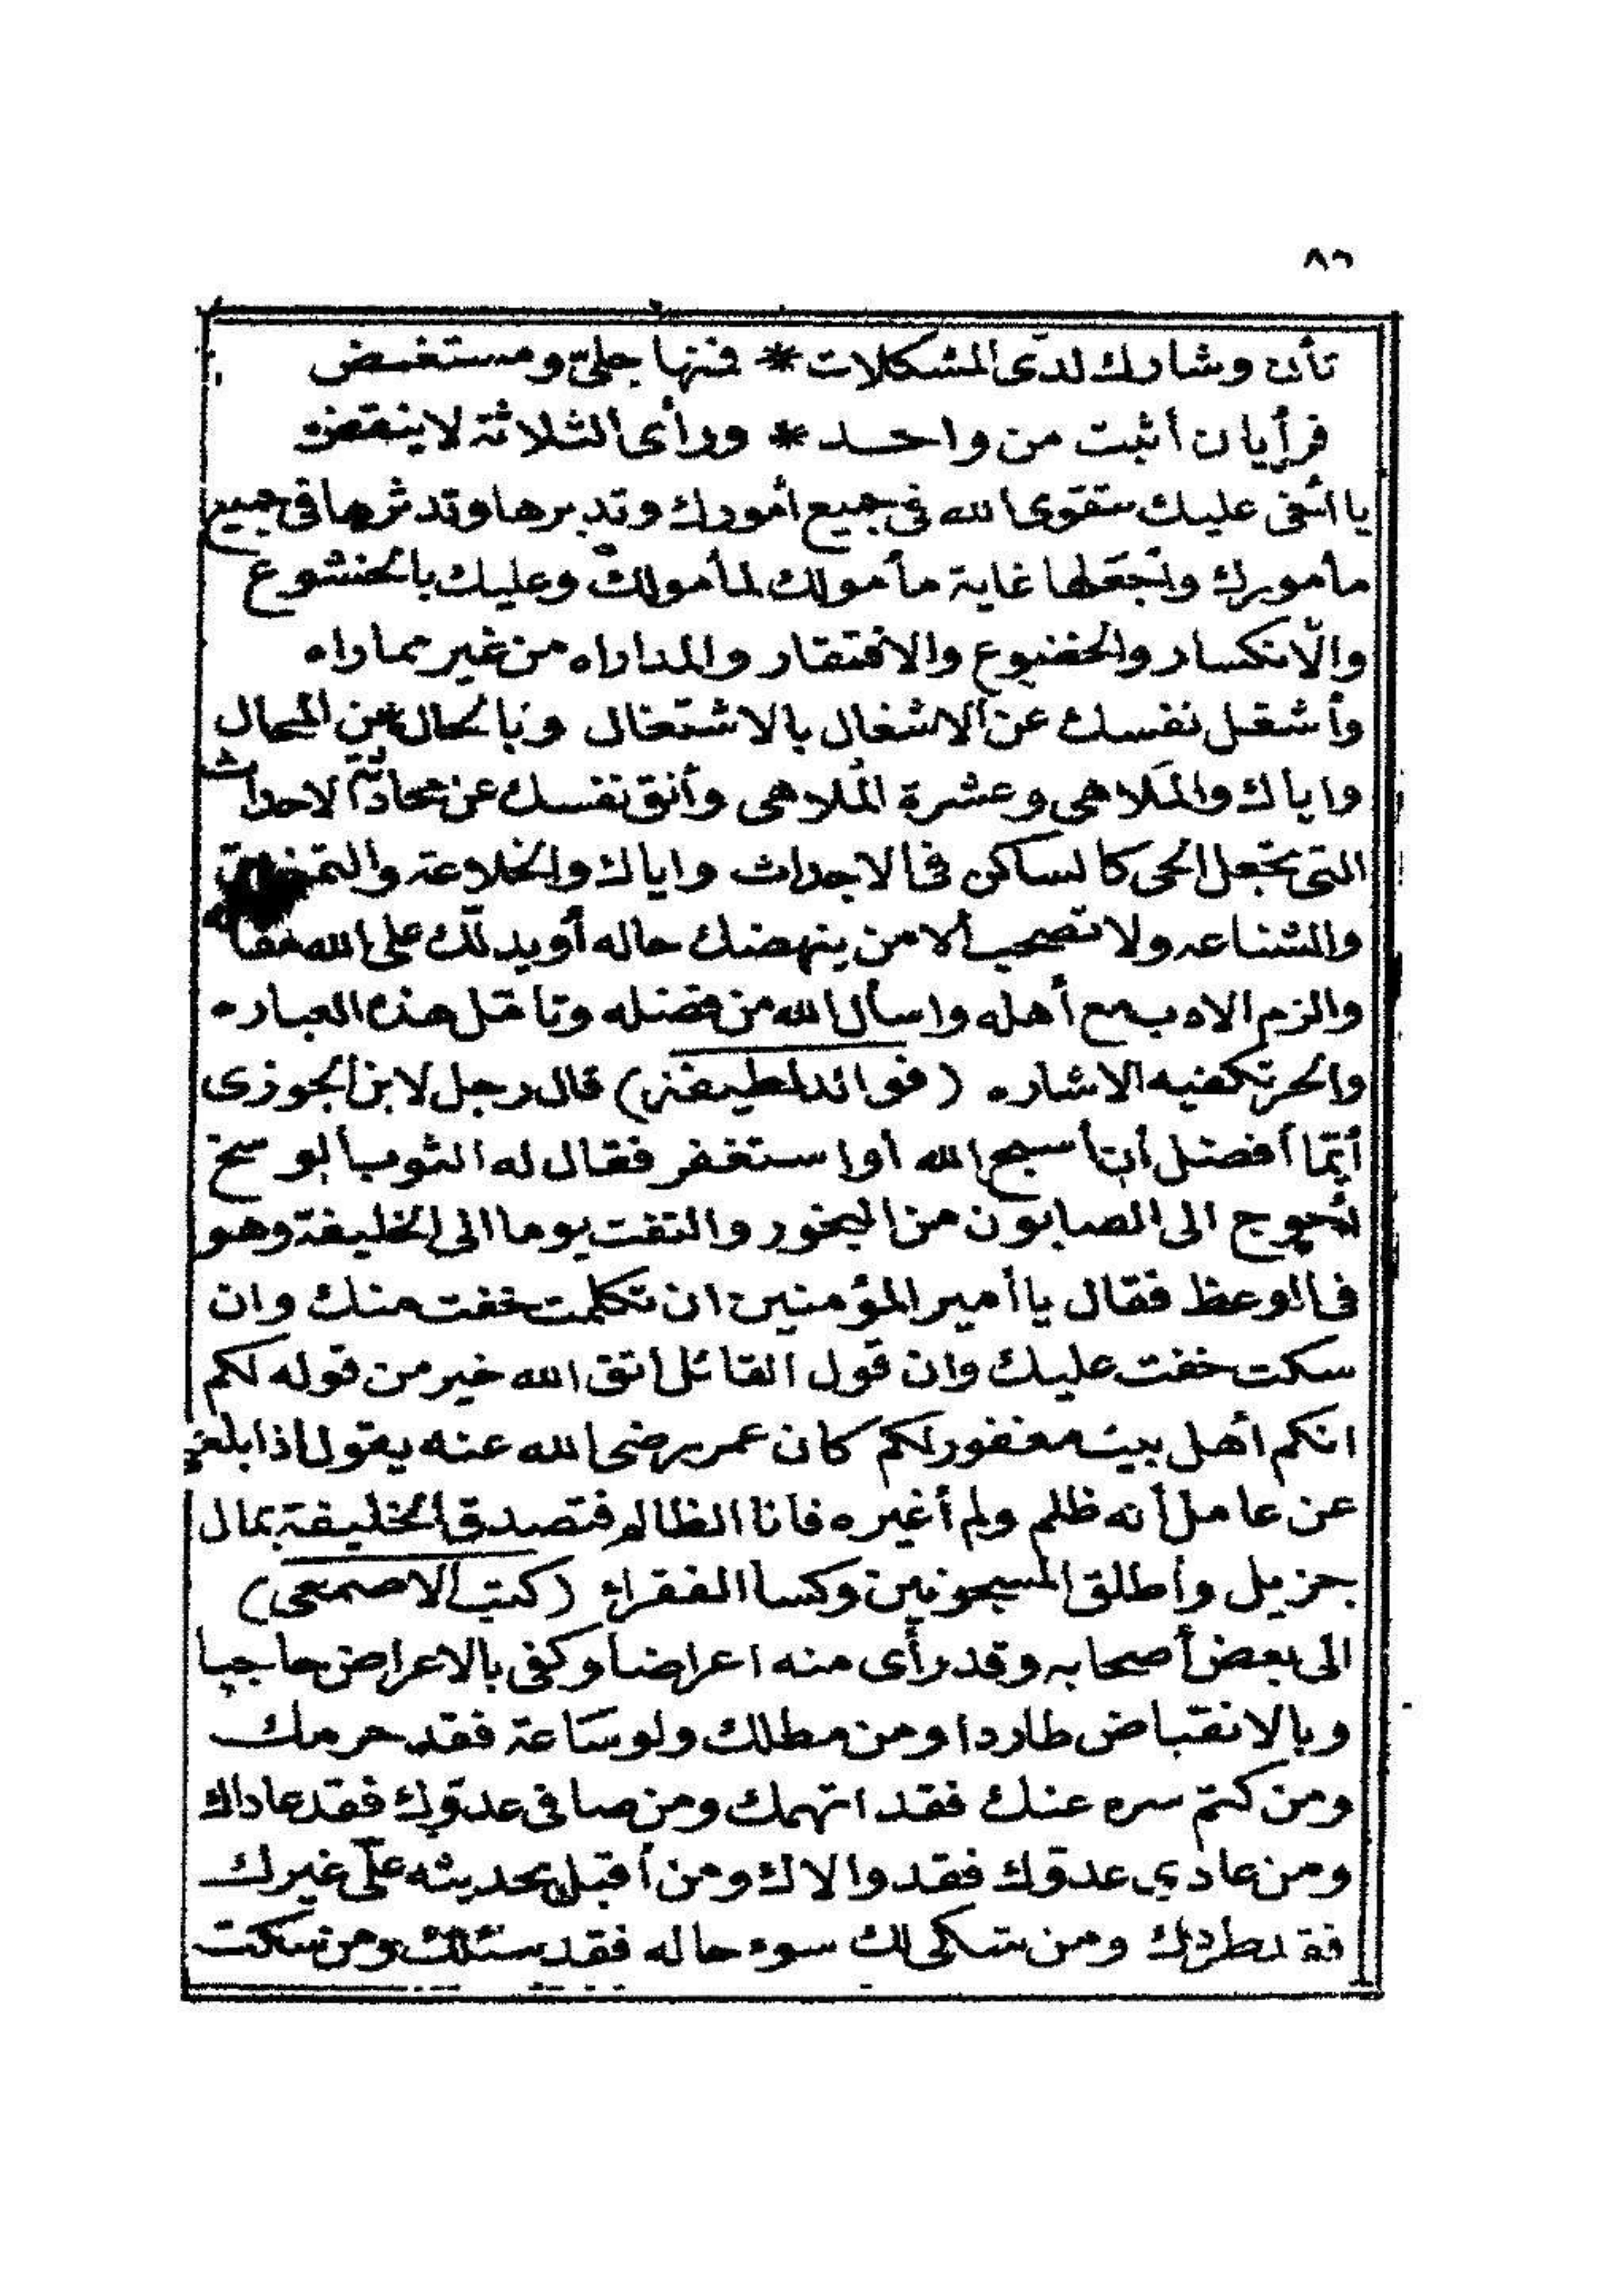 ٨٦
تأن وشارك لدى المشكلات * فمنها جلىّ ومستغمض
فرأيان أثبت من واحد * ورأى الثلاثة لا ينقض
يا أخى عليك بتقوى الله فى جميع أمورك وتدبرها وتدثرها فى جميع
مأمورك وتجعلها غاية مأمولك لمأمولك وعليك بالخشوع
والانكسار والخضوع والافتقار والمداراه من غير مماراه
وأشغل نفسك عن الاشغال بالاشتغال وبالحال عن المحال
واياك والملاهى وعشرة الملاهى وأنق نفسك عن محادثة الاحداث
التى تجعل الحى كالساكن فى الاجداث واياك والخلاعة
والشناعه ولا تصحب الا من ينهضك حاله أو يدلك على الله مقاله
والزم الادب مع أهله واسأل الله من فضله وتأمل هذه العباره
والحر تكفيه الاشاره (فوائد لطيفة) قال رجل لابن الجوزى
أيّما أفضل أن أسبح الله أو استغفر فقال له الثوب أبو سخ
أحوج الى الصابون من البخور والتفت يوما الى الخليفة وهو
فى الوعظ فقال يا أمير المؤمنين ان تكلمت خفت منك وان
سكت خفت عليك وان قول القائل اتق الله خير من قوله لكم
انكم أهل بيت مغفور لكم كان عمر رضى الله عنه يقول اذا بلغنى
عن عامل أنه ظلم ولم أغيره فأنا الظالم فتصدق الخليفة بمال
جزيل وأطلق المسجونين وكسا الفقراء (كتب الاصمعى)
الى بعض أصحابه وقد رأى منه اعراضا وكفى بالاعراض حاجبا
وبالانقباض طاردا ومن مطلك ولو ساعة فقد حرمك
ومن كتم سره عنك فقد اتهمك ومن صافى عدوّك فقد عاداك
ومن عادى عدوّك فقد والاك ومن أقبل بحديثه على غيرك
فقد طردك ومن شكى لك سوء حاله فقد سئلك ومن سكت